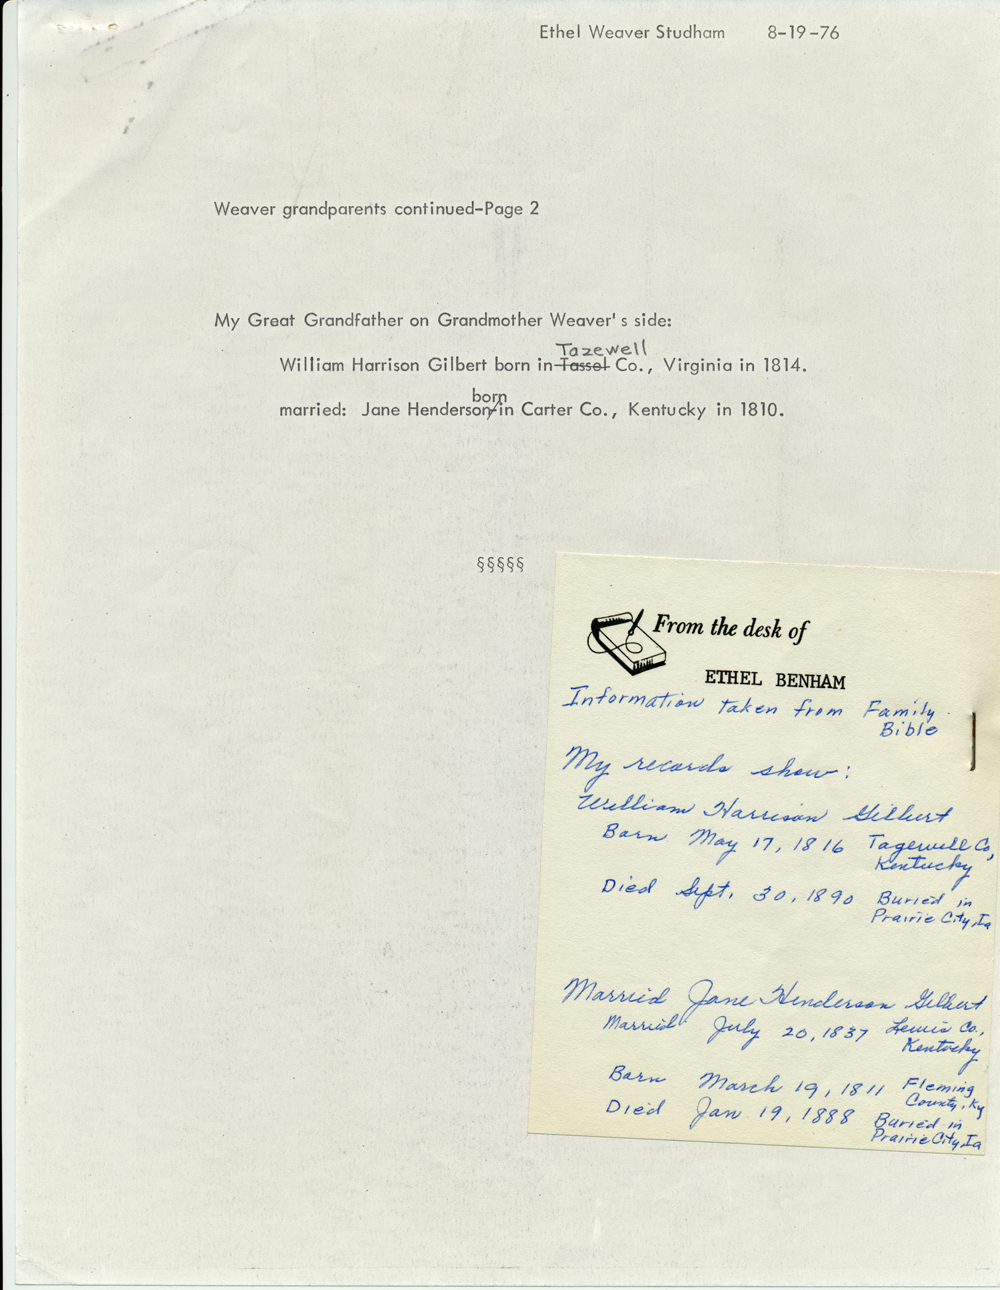 Ethel Weaver Studham 8-19-76
Weaver grandparents continued-Page 2
My Great Grandfather on Grandmother Weaver's side:
Tazewell
William Harrison Gilbert born in Tassel Co., Virginia in 1814.
born
married: Jane Henderson/in Carter Co., Kentucky in 1810.
§§§§§
From the desk of
ETHEL BENHAM
Information taken from Family
Bible
My records show:
William Harrison Gilbert
Born May 17, 1816 Tagewell Co,
Kentucky
Died Sept. 30, 1890 Buried in
Prairie City, Ia
Married Jane Henderson Gilbert
Married July 20, 1837 Lewis Co.,
Kentucky
Born March 19, 1811 Fleming
County, Ky
Died Jan 19, 1888 Buried in
Prairie City, Ia